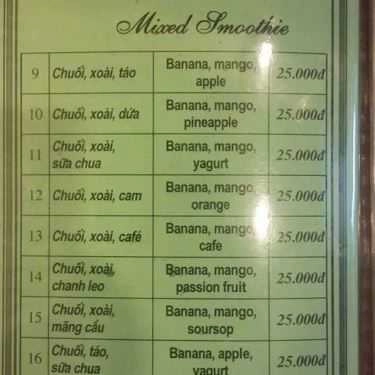 Mixed Smoothie
9 Chuối, xoài, táo Banana, mango, apple 25.000đ
10 Chuối, xoài, dứa Banana, mango, pineapple 25.000đ
11 Chuối, xoài, sữa chua Banana, mango, yagurt 25.000đ
12 Chuối, xoài, cam Banana, mango, orange 25.000đ
13 Chuối, xoài, café Banana, mango, cafe 25.000đ
14 Chuối, xoài, chanh leo Banana, mango, passion fruit 25.000đ
15 Chuối, xoài, mãng cầu Banana, mango, soursop 25.000đ
16 Chuối, táo, sữa chua Banana, apple, yagurt 25.000đ